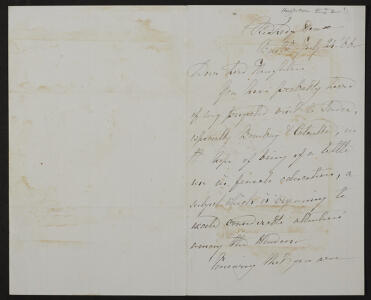 Red Lodge House
Bristol July 24 '66
Dear Lord Houghton
You have probably heard
of my projected visit to India,
especially Bombay & Calcutta, in
the hope of being of a little
use in female education, a
subject which is beginning to
excite considerable attention
among the Hindoos
Knowing that you are